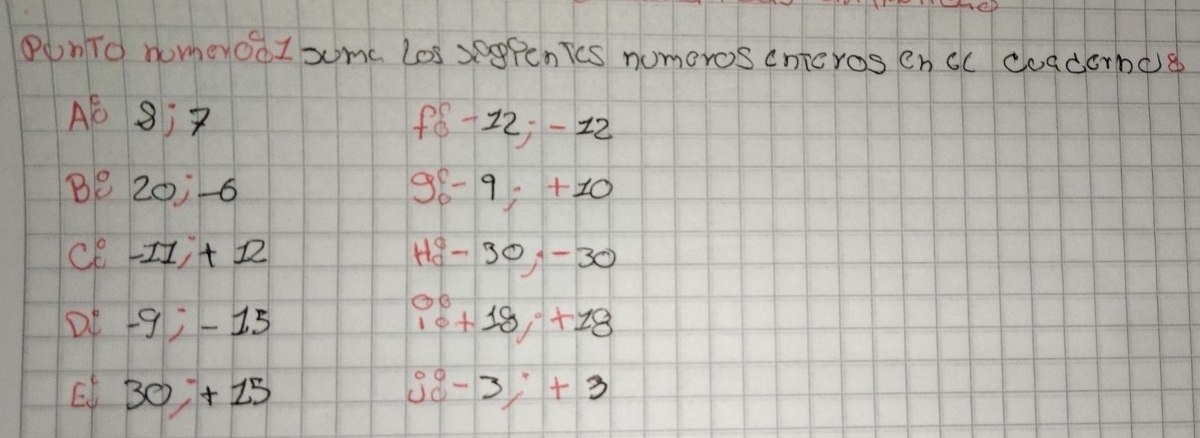 Punto numero:1 suma los sigientes numeros enteros en el cuaderno:
A: 8; 7
B: 20; -6
C: -11; + 12
D: -9; - 15
E: 30; + 15
f: -12; - 12
g: - 9; +10
H: - 30; - 30
i: + 18; +18
j: - 3; + 3